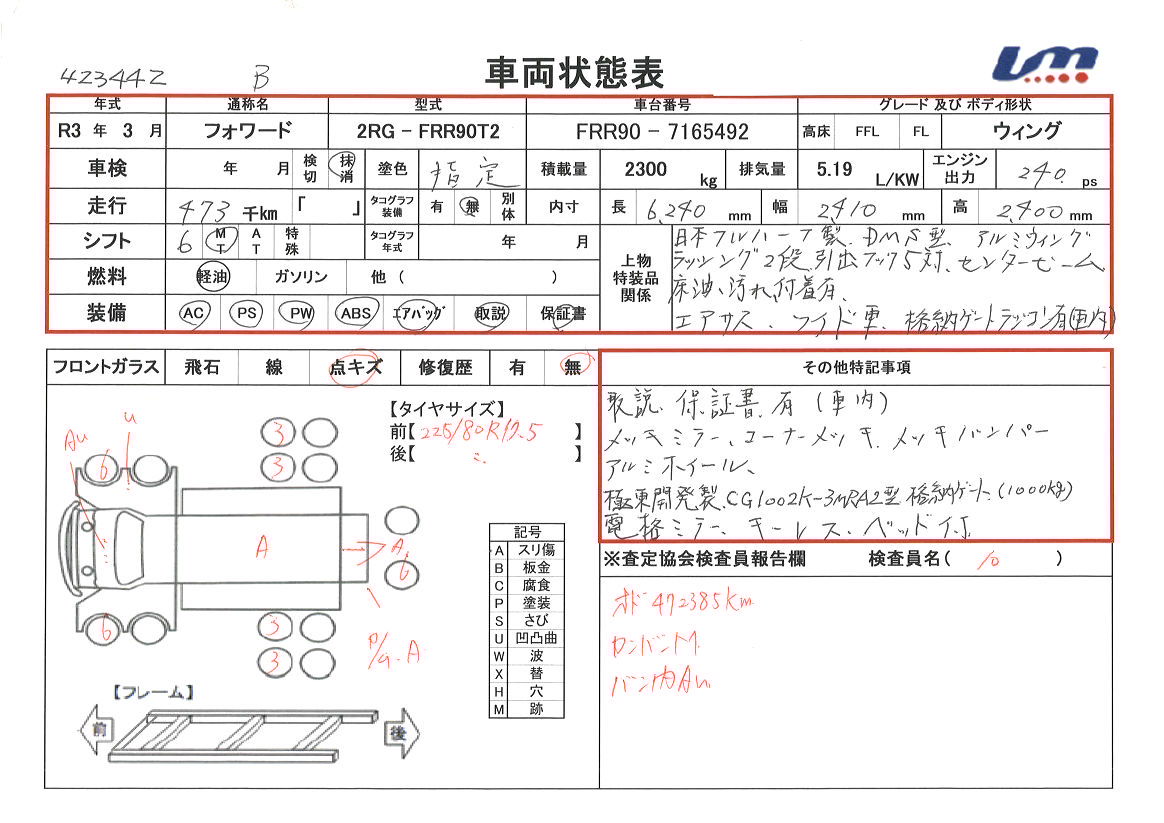 423442 B 車両状態表 UM
年式 通称名 型式 車台番号 グレード 及び ボディ形状
R3 年 3 月 フォワード 2RG - FRR90T2 FRR90 - 7165492 高床 FFL FL ウィング
車検 年 月 検切 抹消 塗色 指定 積載量 2300 kg 排気量 5.19 L/KW エンジン出力 240 ps
走行 473 千km 「 」 タコグラフ装備 有 無 別体 内寸 長 6,240 mm 幅 2,410 mm 高 2,400 mm
シフト 6 MT AT 特殊 タコグラフ年式 年 月
燃料 軽油 ガソリン 他 ( )
装備 AC PS PW ABS エアバッグ 取説 保証書
上物特装品関係
日本フルハーフ製、DMS型、アルミウィング
ラッシング2段、引出フック5対、センタービーム、
床油、汚れ付着有、
エアサス、ワイド車、格納ゲートラジコン有(車内)
フロントガラス 飛石 線 点キズ 修復歴 有 無
その他特記事項
取説、保証書、有(車内)
メッキミラー、コーナーメッキ、メッキバンパー
アルミホイール、
極東開発製、CG1002K-3MRA2型 格納ゲート、(1000kg)
電格ミラー、キーレス、ベッド付、
※査定協会検査員報告欄 検査員名( 10 )
オド 472385km
カンバンM
バン内Au
【タイヤサイズ】
前【 225/80R17.5 】
後【 〃 】
Au u
6
3
3
A A 6
6
3
3
P/G. A
記号
A スリ傷
B 板金
C 腐食
P 塗装
S さび
U 凹凸曲
W 波
X 替
H 穴
M 跡
【フレーム】
前 後